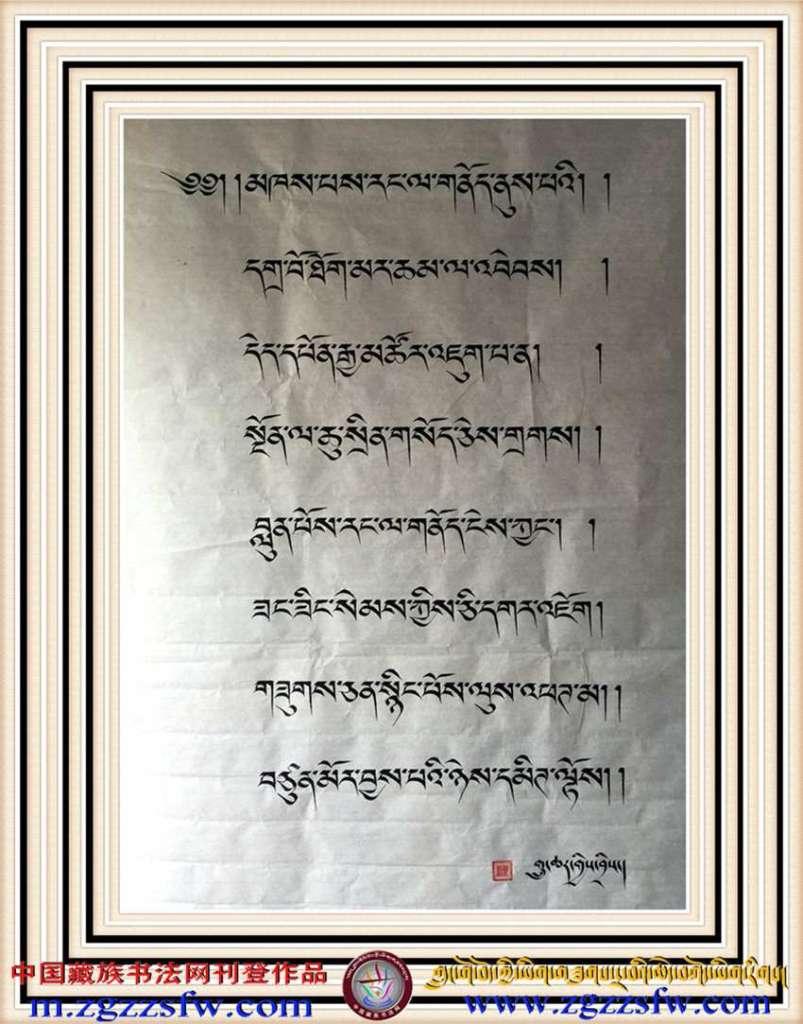 ༄༅། །མཁས་པས་རང་ལ་གནོད་ནུས་པའི། །
དགྲ་བོ་ཐོག་མར་ཆམ་ལ་འབེབས། །
དེད་དཔོན་རྒྱ་མཚོར་འཇུག་པ་ན། །
སྔོན་ལ་ཆུ་སྲིན་གསོད་ཅེས་གྲགས། །
བླུན་པོས་རང་ལ་གནོད་ངེས་ཀྱང་། །
ཟང་ཟིང་སེམས་ཀྱིས་ཅི་དགར་འཇོག །
གཟུགས་ཅན་སྙིང་པོས་ལུས་འཕཊ་མ། །
བཙུན་མོར་བྱས་པའི་ཉེས་དམིཊ་ལྟོས། །
中国藏族书法网刊登作品
m.zgzzsfw.com
www.zgzzsfw.com